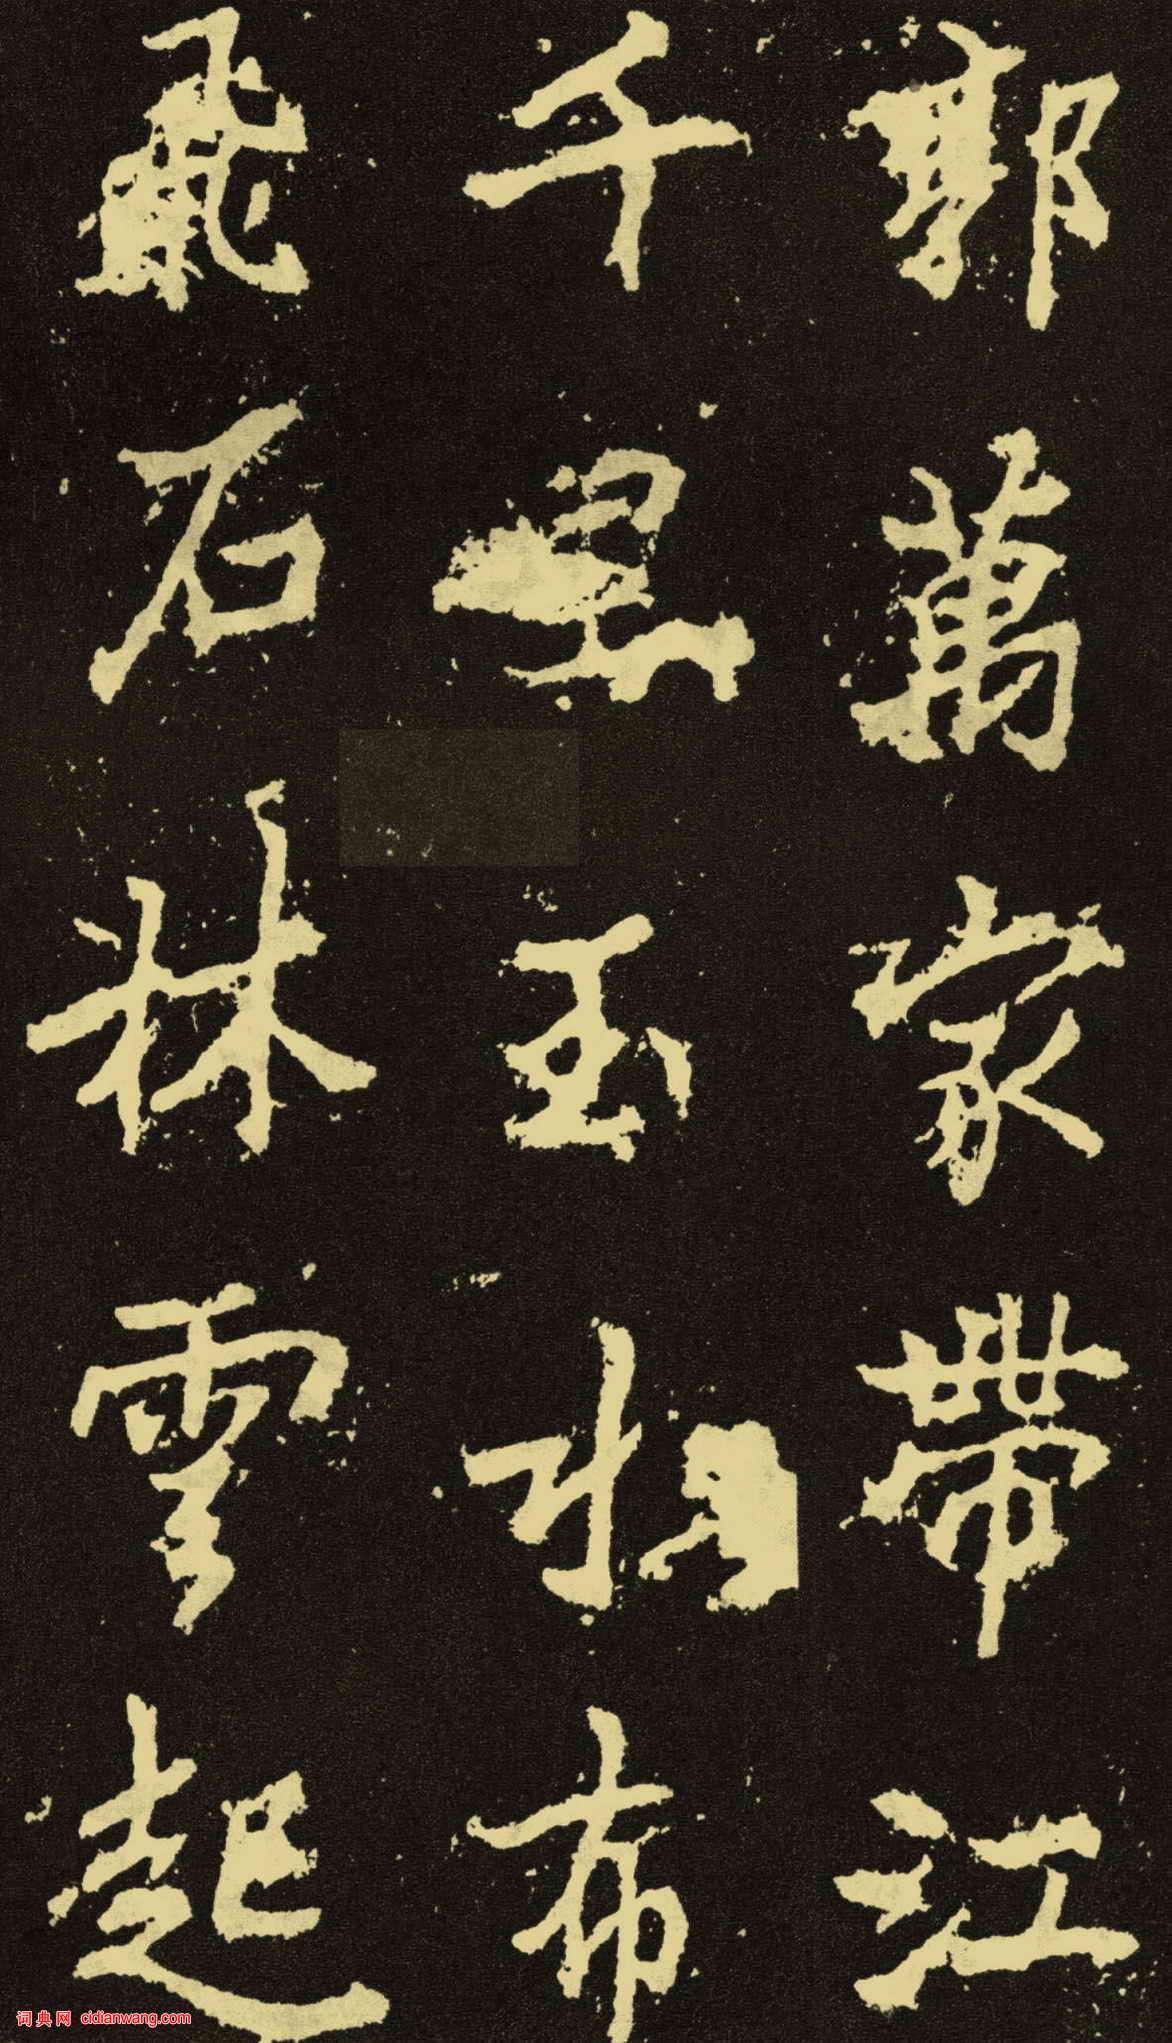 郭萬家帶江
千里玉水布
飛石林雲起
词典网 cidianwang.com